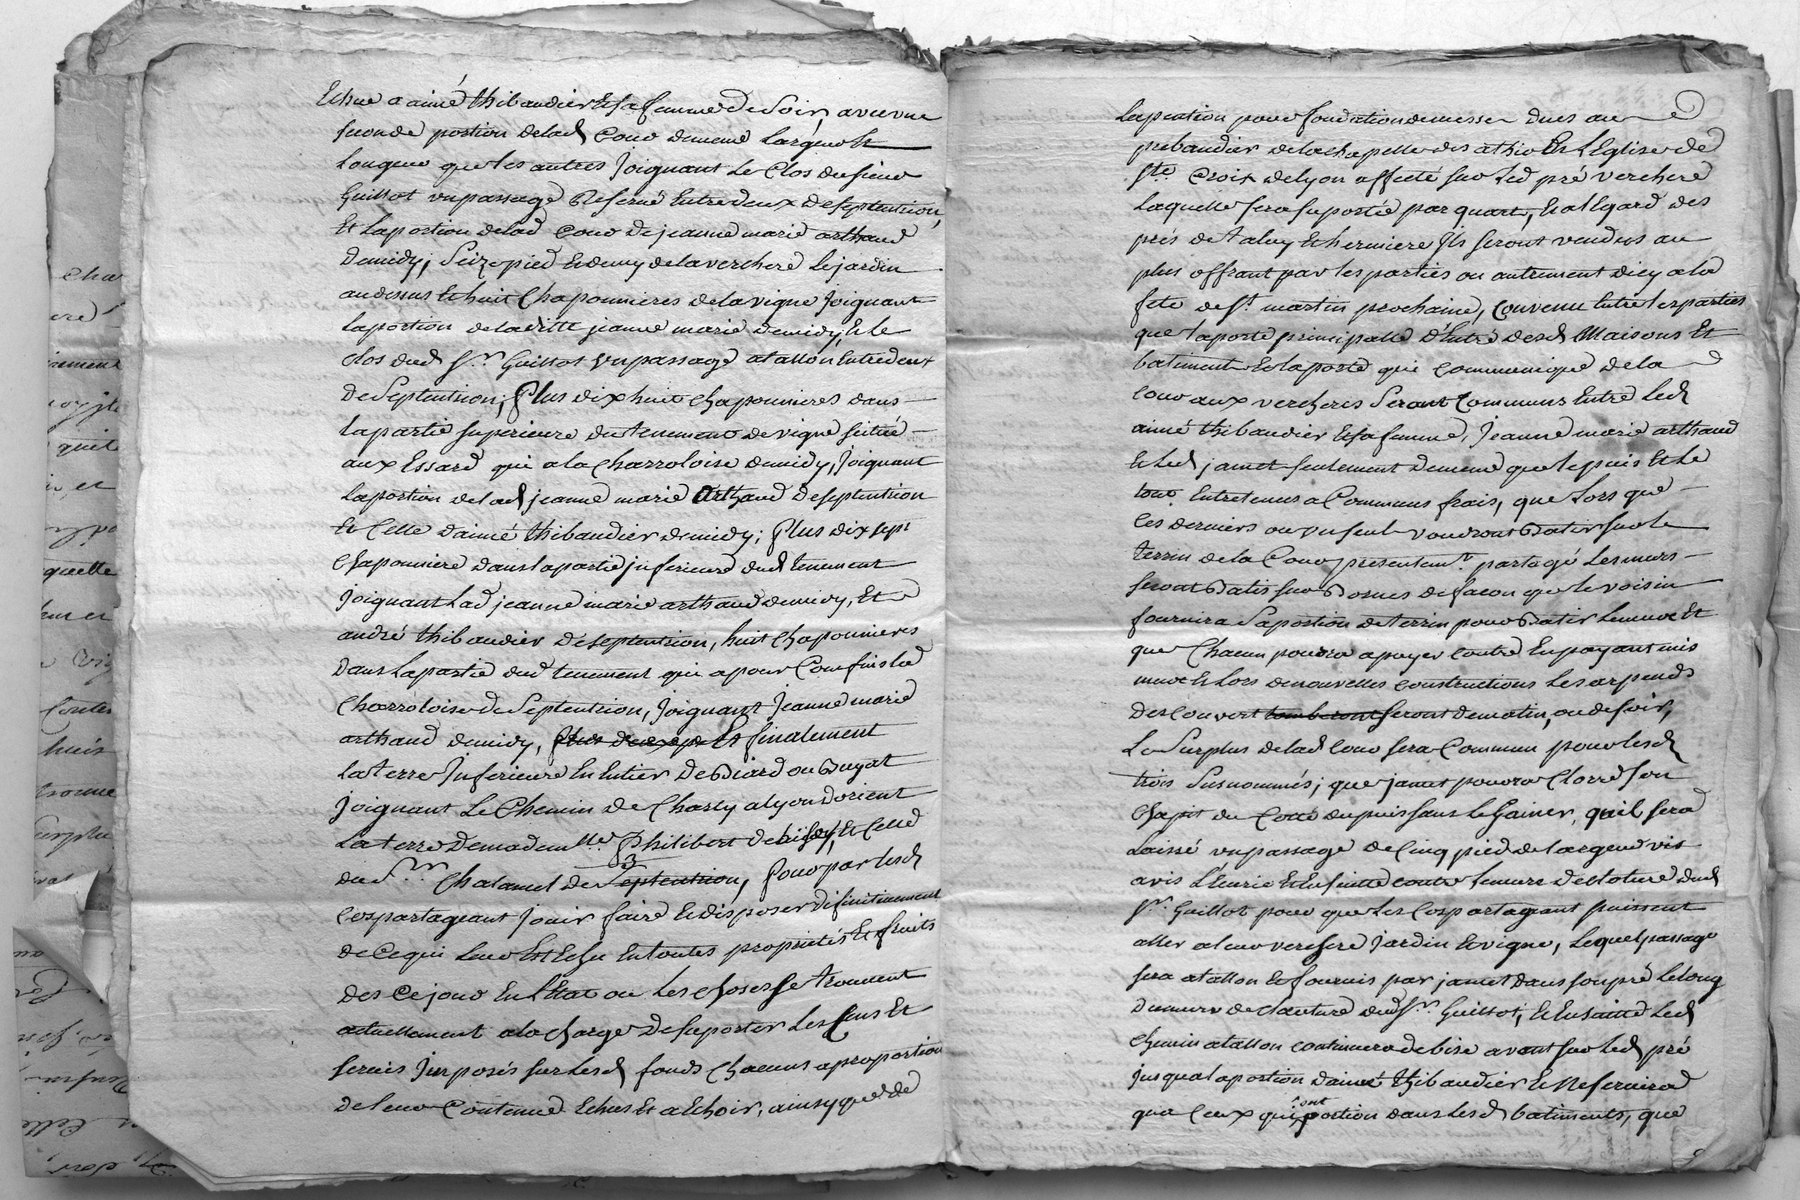 Echue a aimé thibaudier et sa femme de soir, avec une
seconde portion de lad cour de meme largeur et
longueur que les autres joignant le clos du sieur
Guillot un passage reservé entre deux de septentrion,
et la portion de lad cour de jeanne marie arthaud
de midy, seize pied et demy de la verchere le jardin
au dessus et huit chaponnieres de la vigne joignant
la portion de laditte jeanne marie de midy, et le
clos dud sr Guillot un passage a tallon entre deux
de septentrion; Plus dix huit chaponnieres dans
la partie superieure du tenement de vigne scitué
aux Essard qui a la charroloise de midy, joignant
la portion de lad jeanne marie Arthaud de septentrion
et celle d'aimé thibaudier de midy; Plus dix sept
chaponniere dans la partie inferieure dud tenement
joignant lad jeanne marie arthaud de midy, et
andré thibaudier de septentrion, huit chaponnieres
dans la partie dud tenement qui a pour confins lad
charroloise de septentrion, joignant jeanne marie
arthaud de midy, et finalement
la terre inferieure en entier de Biard ou Buyat
joignant le chemin de Charly a lyon d'orient
la terre de mademlle Philibert de bise, et celle
du Sr Chalamel de septentrion, pour par lesd
copartageant jouir faire et disposer definitivement
de ce qui leur est echu en toutes proprietés et fruits
des ce jour en l'Etat ou les choses se trouvent
actuellement a la charge de suporter les cens et
servis imposés sur lesd fonds chacuns a proportion
de leur contenue echues et a echoir, ainsy que de
la pention pour fondation de messe dues au
prebandier de la chapelle des athio et l'Eglise de
ste Croix de lyon affecté sur led pré verchere
laquelle sera suportée par quart, et a l'Egard des
prés de taluy et hermiere ils seront vendus au
plus offrant par les parties ou autrement d'icy a la
fete de st martin prochaine, convenu entre les parties
que la porte principalle d'Entré desd Maisons et
batiment et la porte qui communique de la
cour aux vercheres seront communs entre led
aimé thibaudier et sa femme, jeanne marie arthaud
et led jamet seulement de meme que le puis et le
tout entretenus a communs frais, que lors que
ces derniers ou un seul voudront batir sur le
terrin de la cour presentemt partagé les murs
seront batis sur bornes de facon que le voisin
fournira sa portion de terrin pour batir le mur et
que chacun pourra apayer contre en payant mis
mur et lors de nouvelles constructions les arpends
des couvert tomberont seront de matin, ou de soir,
le surplus de lad cour sera commun pour lesd
trois susnommés; que jamet pourra clorre son
chapit du coté du puis sans le gainer, qu'il sera
laissé un passage de cinq pied de largeur vis
avis l'écurie et ensuitte contre le mure de cloture dud
sr Guillot pour que les copartageant puissent
aller a leur verchere jardin et vigne, lequel passage
sera a tallon et fournis par jamet dans son pré le long
du mur de clauture dud sr Guillot, et ensuitte led
chemin a tallon continuera de bise a vent sur led pré
jusqu'a la portion d'aimé thibaudier et ne servira
qu'a ceux qui ont portion dans lesd batiments, que